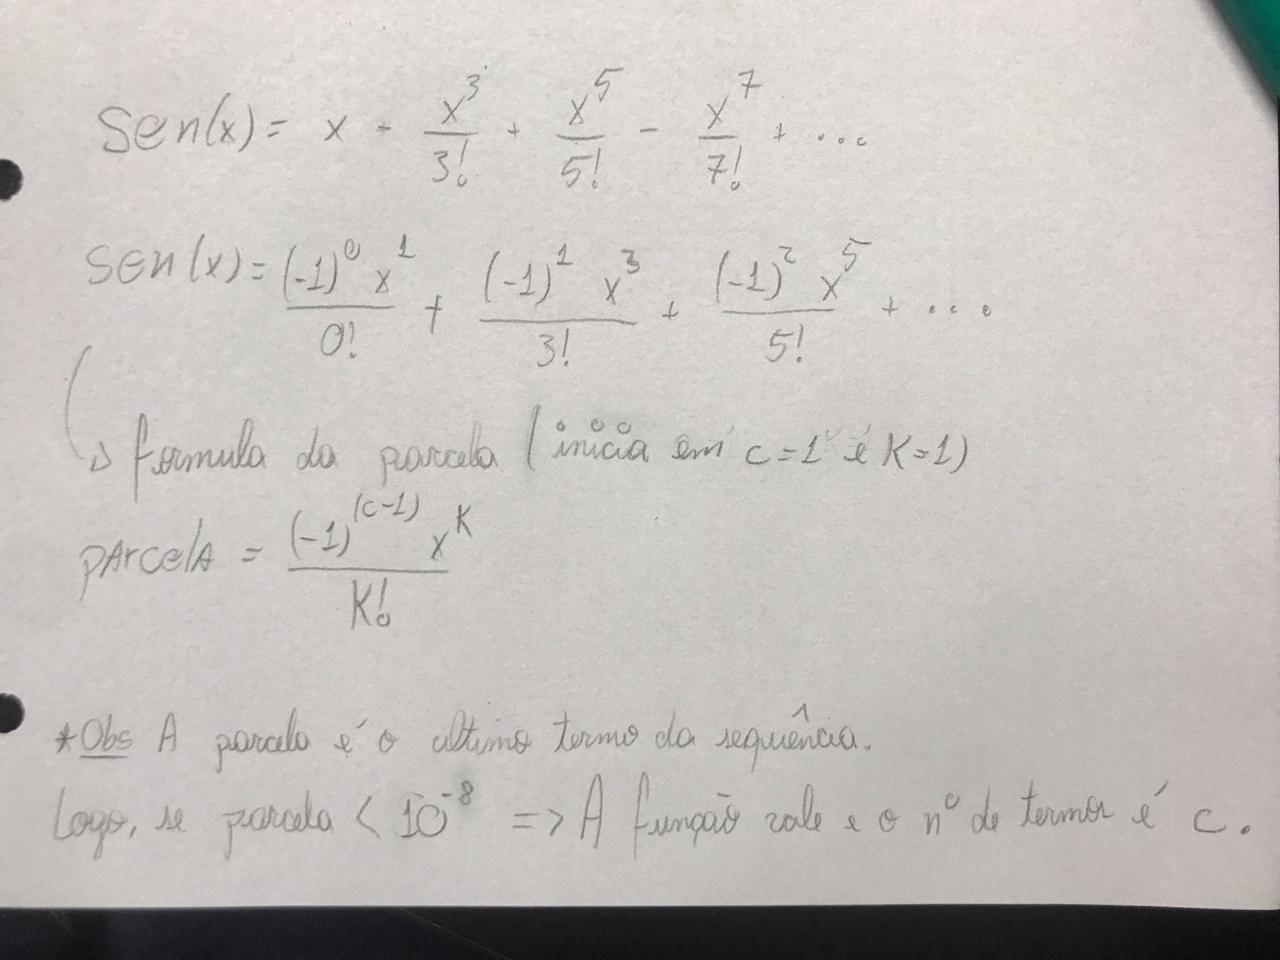 Sen(x) = x - x³/3! + x⁵/5! - x⁷/7! + ...
sen(x) = (-1)⁰ x¹/0! + (-1)¹ x³/3! + (-1)² x⁵/5! + ...
formula da parcela (inicia em c=1 e K=1)
pArcelA = (-1)^(c-1) x^K/K!
*Obs A parcela é o ultimo termo da sequência.
Logo, se parcela < 10⁻⁸ => A função vale e o nº de termos é c.